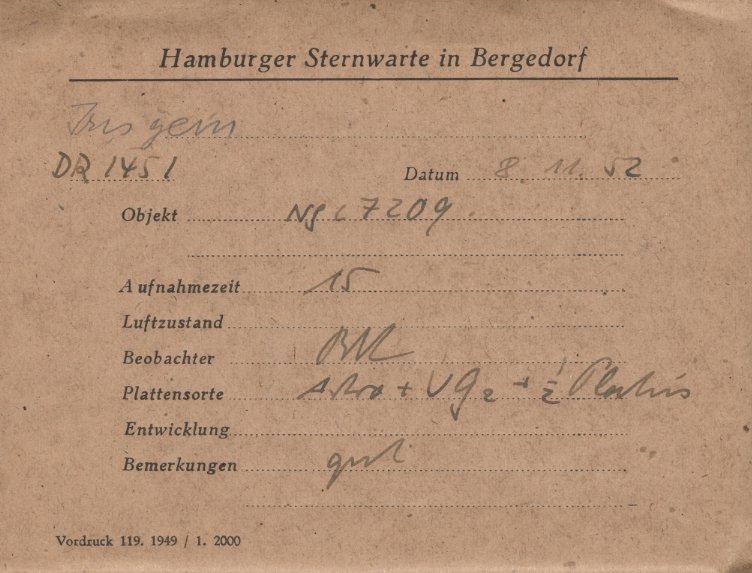 Hamburger Sternwarte in Bergedorf
DR 1451 Datum 8. 11. 52
Objekt NGC 7209
Aufnahmezeit 15
Luftzustand
Beobachter
Plattensorte Astro + UG2 + 1/2
Entwicklung
Bemerkungen gut
Vordruck 119. 1949 / 1. 2000